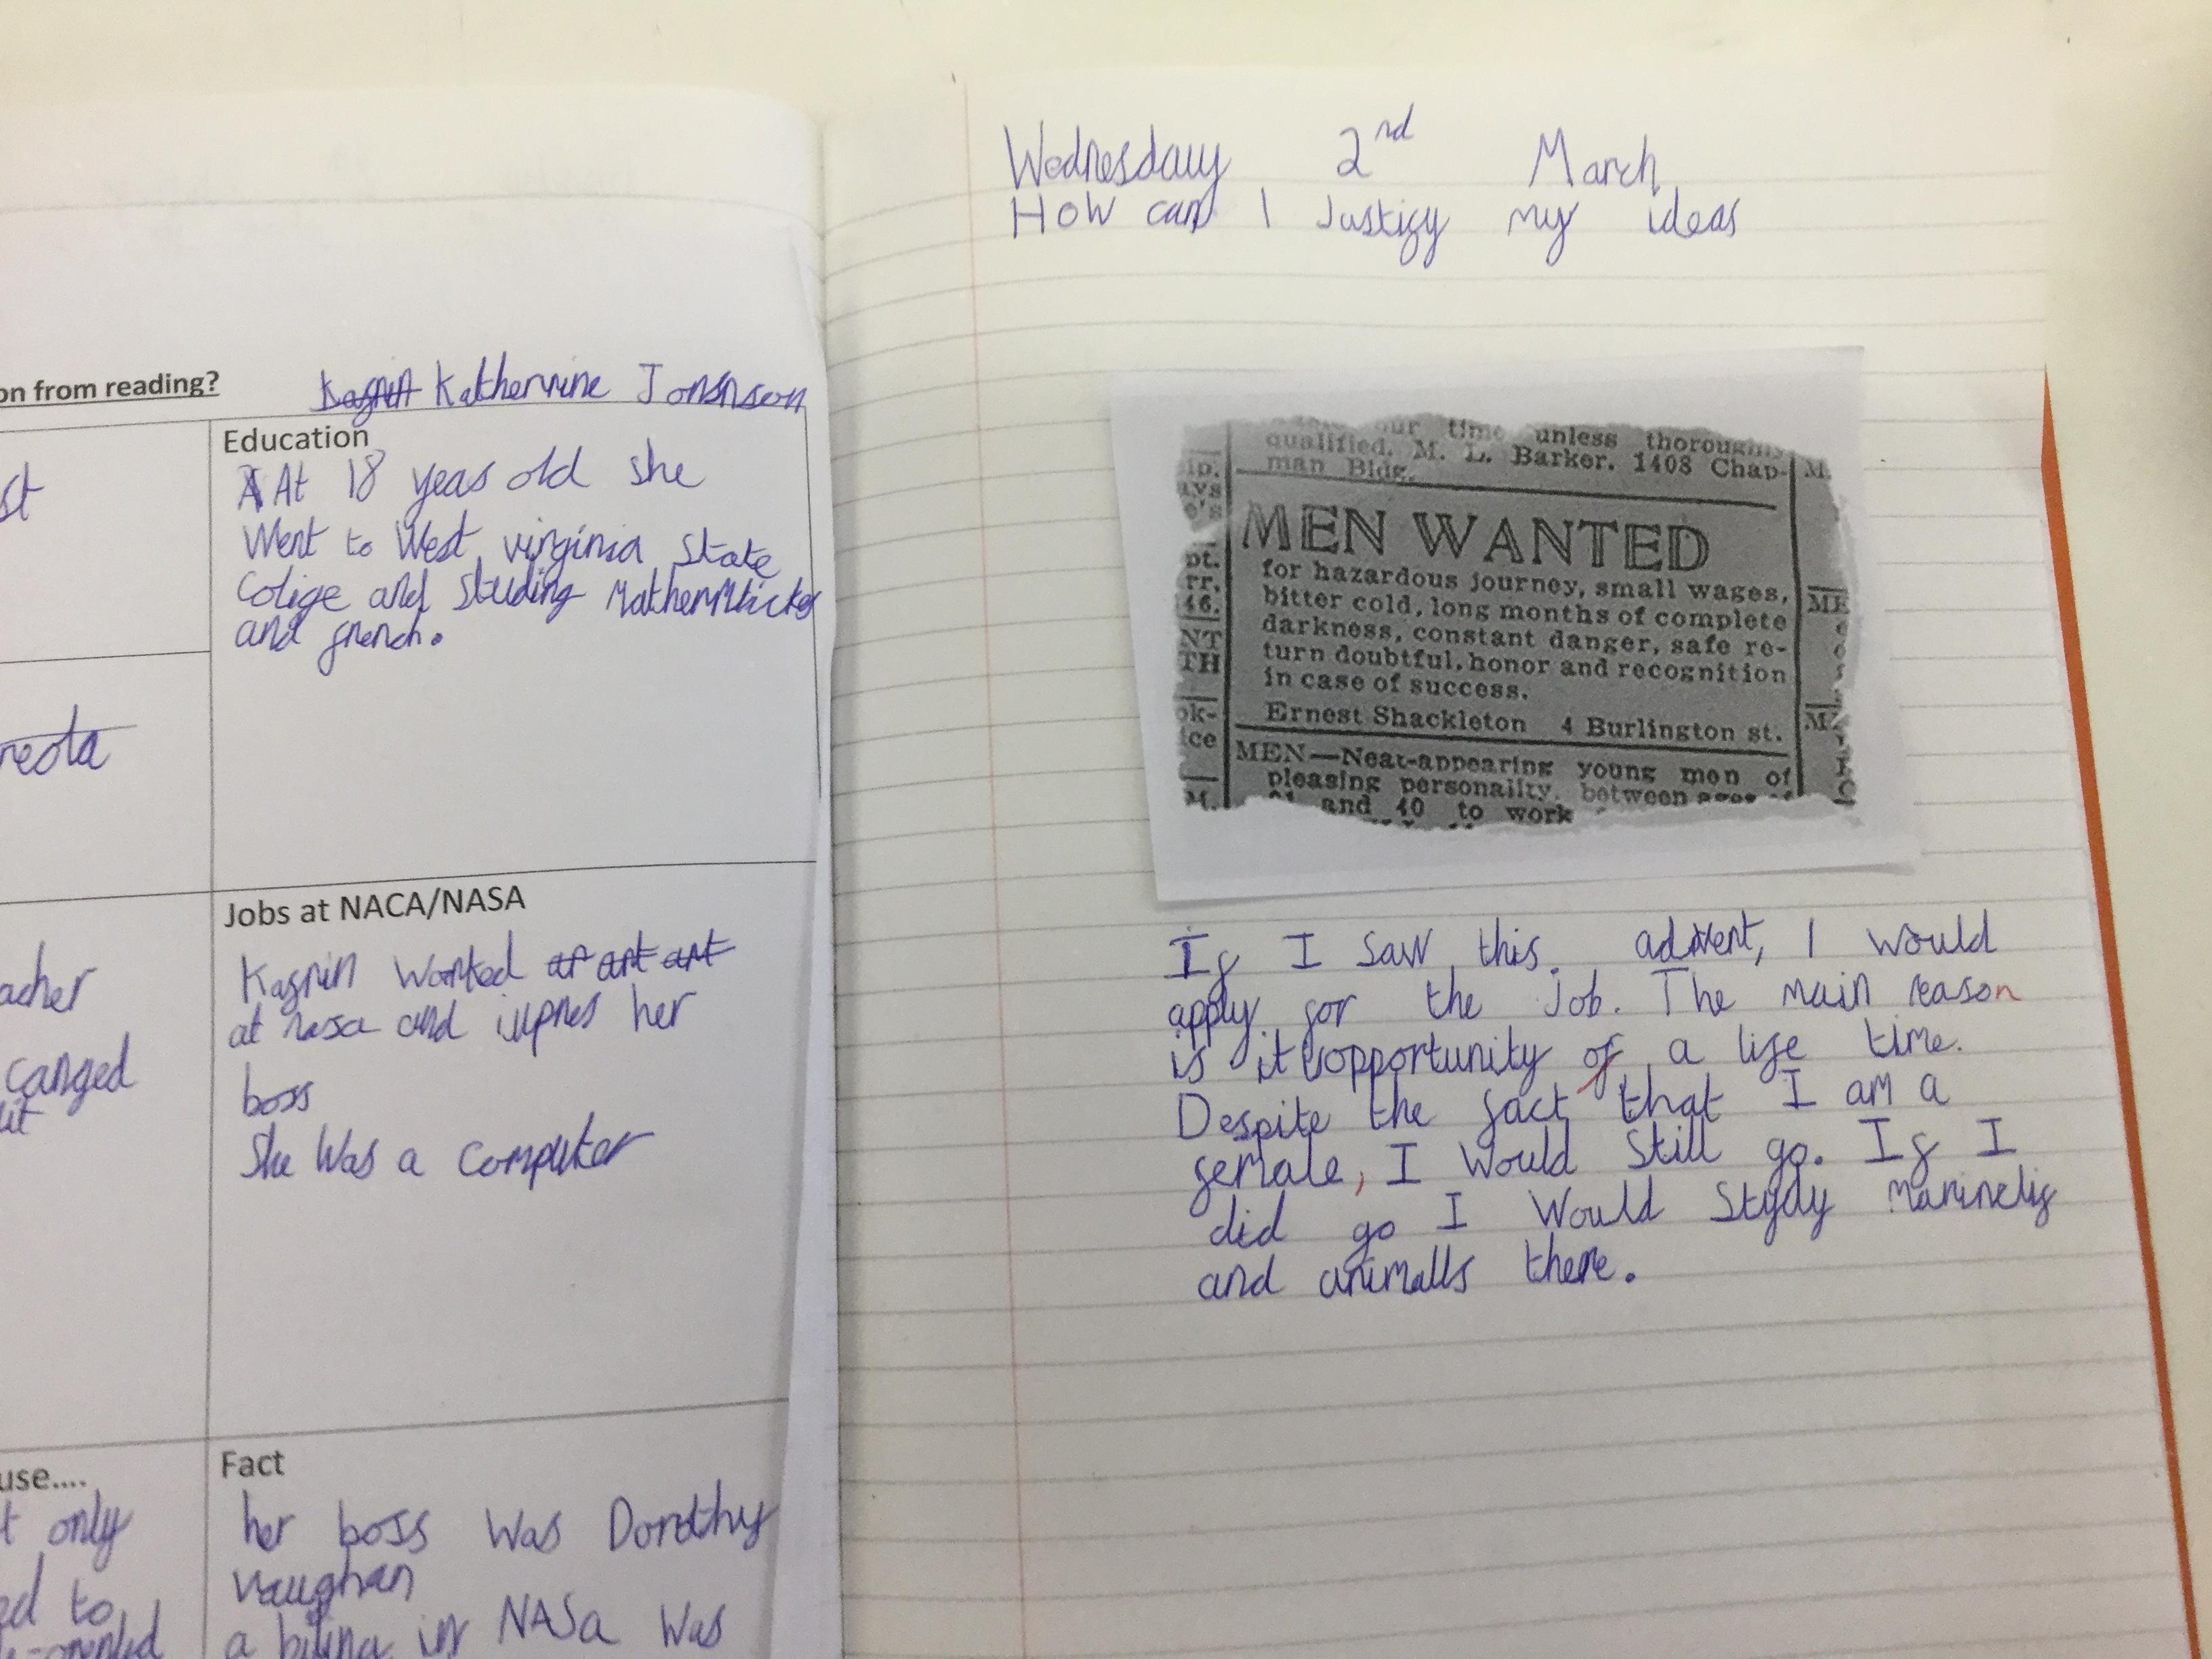 on from reading?
Kathervine Jonsnson
st
Education
At 18 yeas old she
Went to West virginia State
Colige and Studing Mathemmticks
and french.
reota
Jobs at NACA/NASA
Kasrin Worked at art art
at nasa and iupnes her
boss
She Was a Computer
acher
canged
use....
t only
ed to
Fact
her boss Was Dorothy
Vaughan
in NASa Was
Wednesday 2nd March
How can I Justify my ideas
our time unless thoroughly
qualified. M. L. Barker. 1408 Chap-
man Bldg.
MEN WANTED
for hazardous journey, small wages,
bitter cold, long months of complete
darkness, constant danger, safe re-
turn doubtful, honor and recognition
in case of success.
Ernest Shackleton 4 Burlington st.
MEN—Neat-appearing young men of
pleasing personality, between ages of
and 40 to work
ip.
ays
e's
pt.
rr.
46.
NT
TH
ok-
ice
M.
M.
ME
M
If I saw this advert, I would
apply for the Job. The main reason
is it opportunity of a life time.
Despite the fact that I am a
female, I would still go. If I
did go I Would Stydy marinelif
and animalls there.